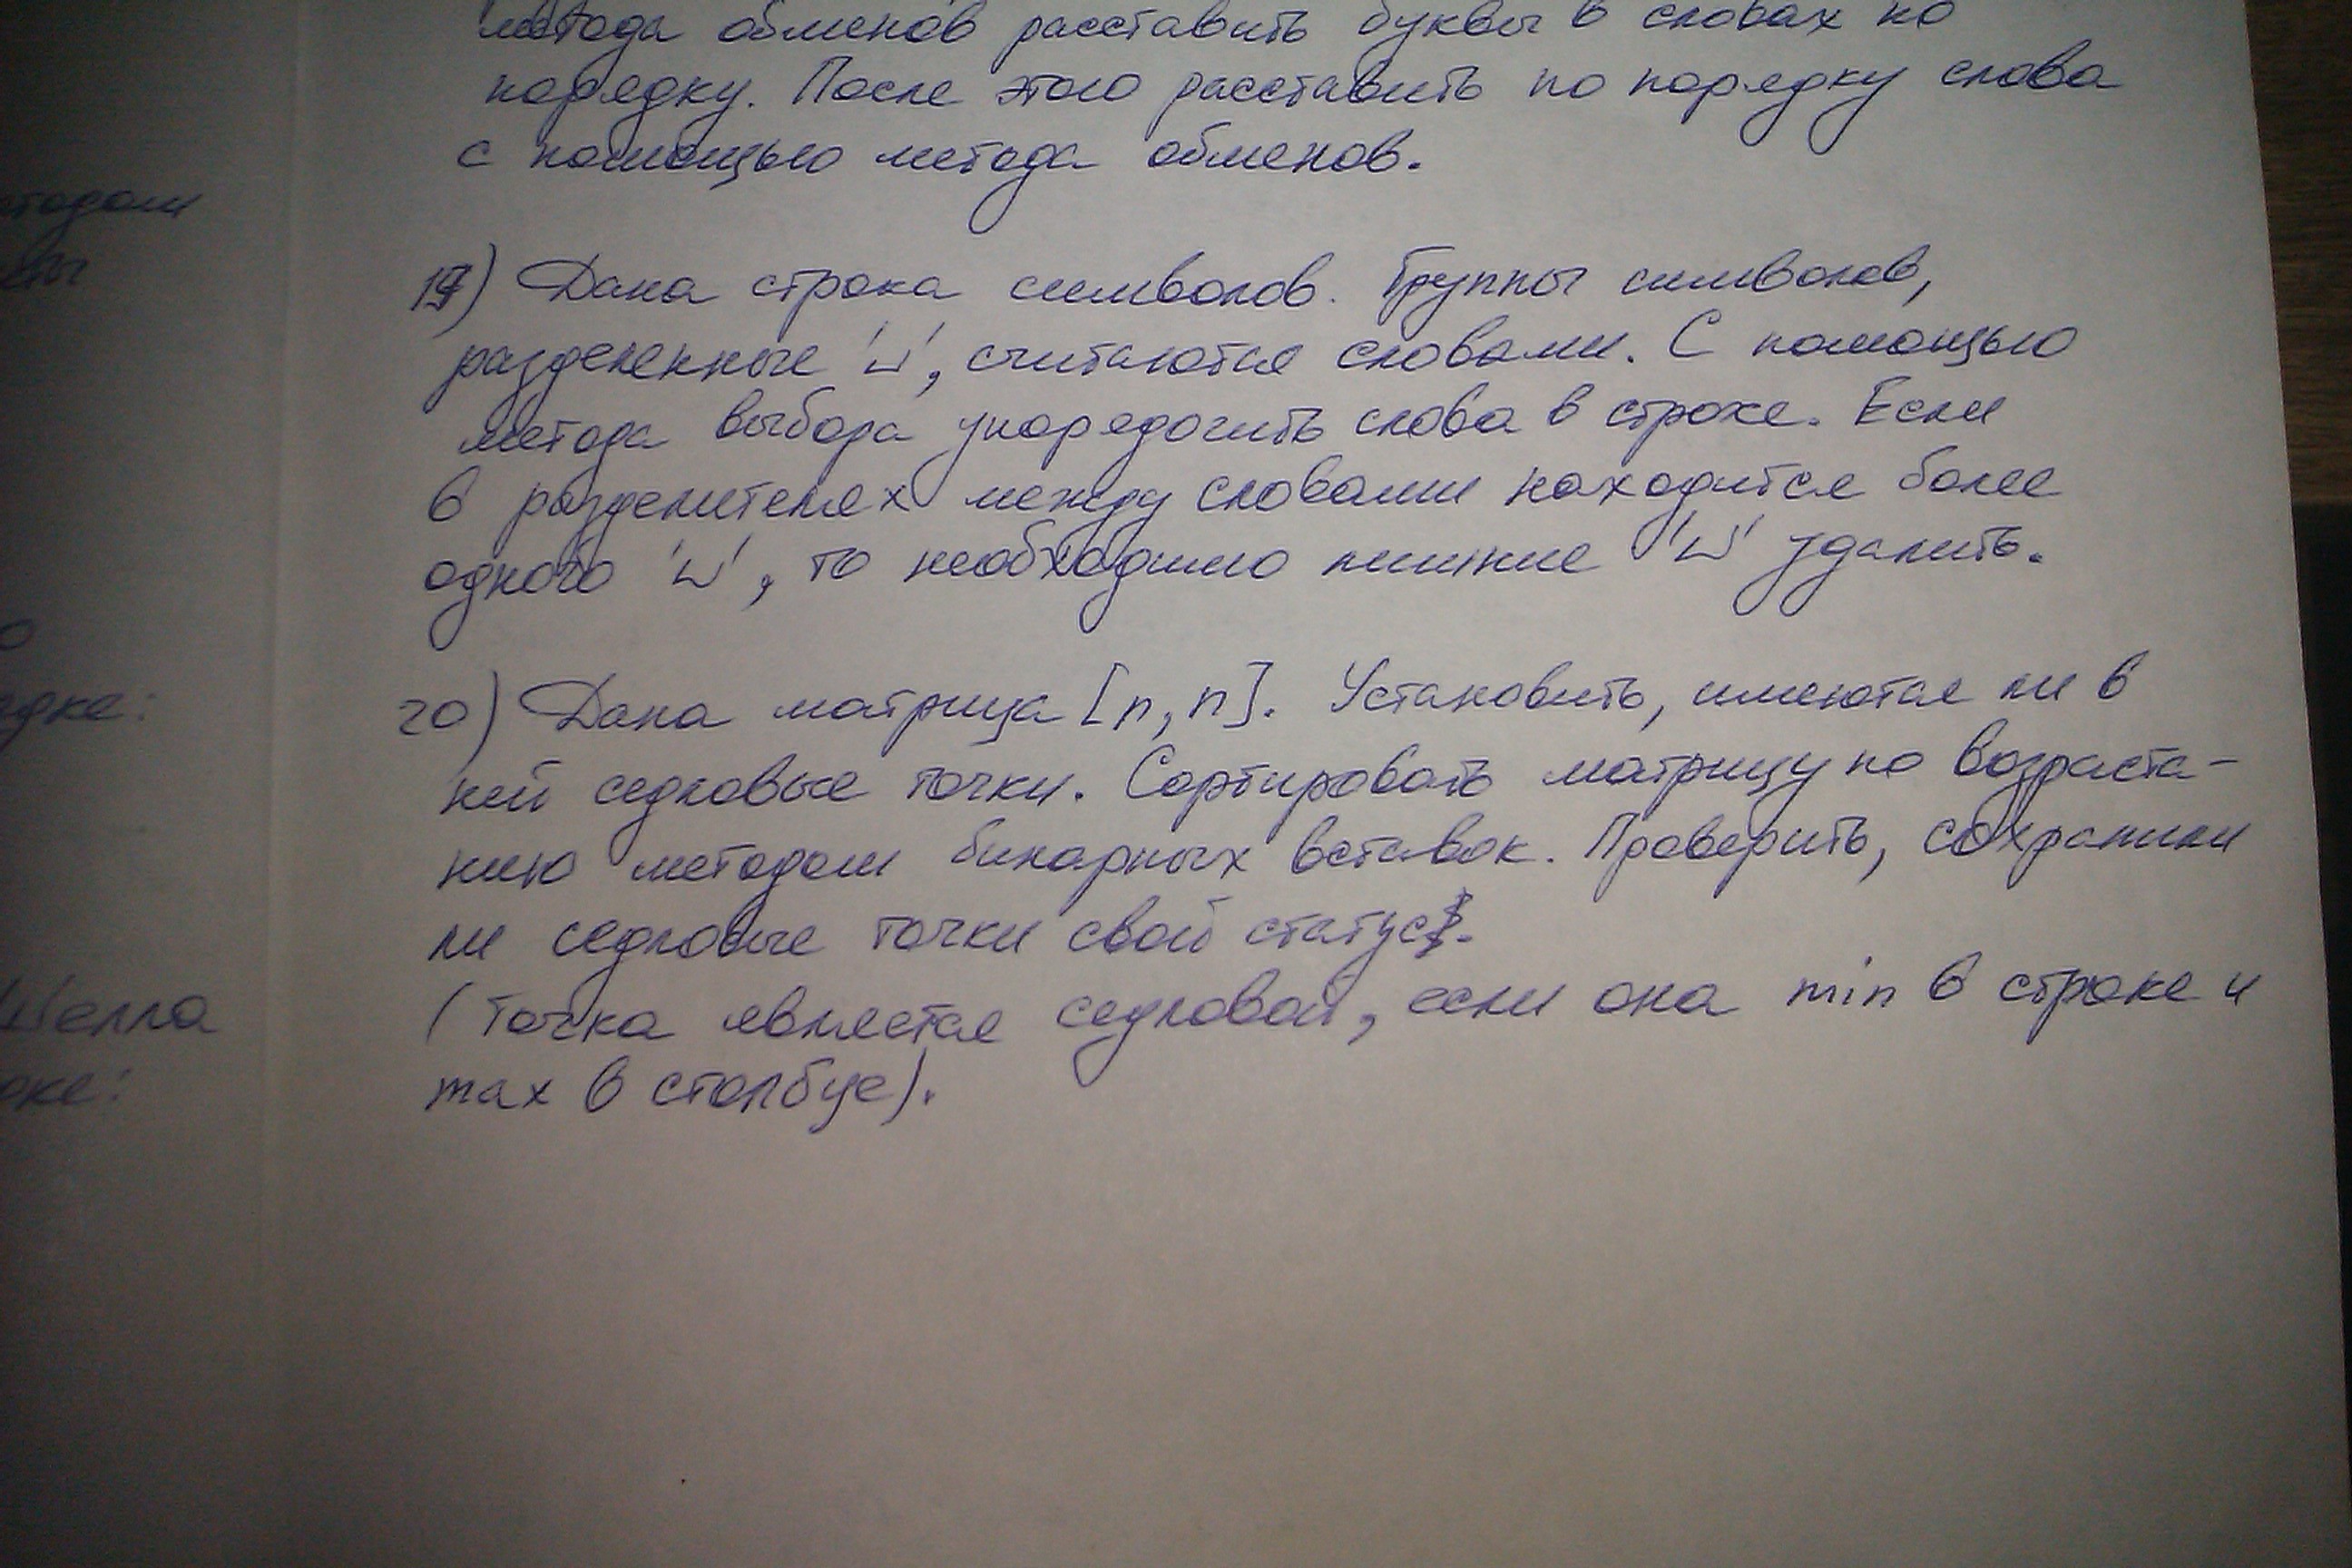 метода обменов расставить буквы в словах по
порядку. После этого расставить по порядку слова
с помощью метода обменов.
19) Дана строка символов. Группы символов,
разделенные '␣', считаются словами. С помощью
метода выбора упорядочить слова в строке. Если
в разделителях между словами находится более
одного '␣', то необходимо лишние '␣' удалить.
20) Дана матрица [n, n]. Установить, имеются ли в
ней седловые точки. Сортировать матрицу по возраста-
нию методом бинарных вставок. Проверить, сохранили
ли седловые точки свой статус.
(Точка является седловой, если она min в строке и
max в столбце).
Шелла